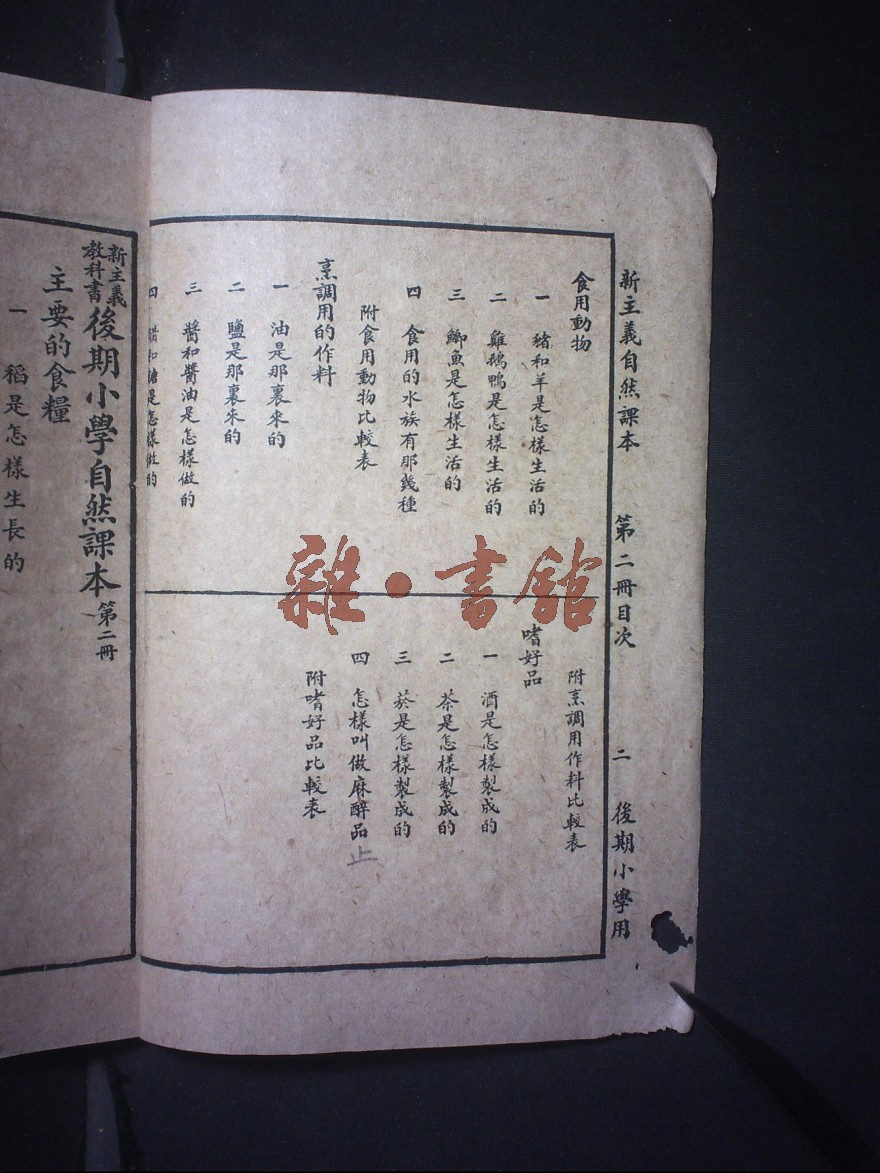 新主義自然課本　第二冊目次　二　後期小學用
食用動物
一　豬和羊是怎樣生活的
二　雞鵝鴨是怎樣生活的
三　鯽魚是怎樣生活的
四　食用的水族有那幾種
附食用動物比較表
烹調用的作料
一　油是那裏來的
二　鹽是那裏來的
三　醬和醬油是怎樣做的
四　醋和糖是怎樣做的
附烹調用作料比較表
嗜好品
一　酒是怎樣製成的
二　茶是怎樣製成的
三　菸是怎樣製成的
四　怎樣叫做麻醉品
止
附嗜好品比較表
新主義教科書後期小學自然課本第二冊
主要的食糧
一　稻是怎樣生長的
雜·書館